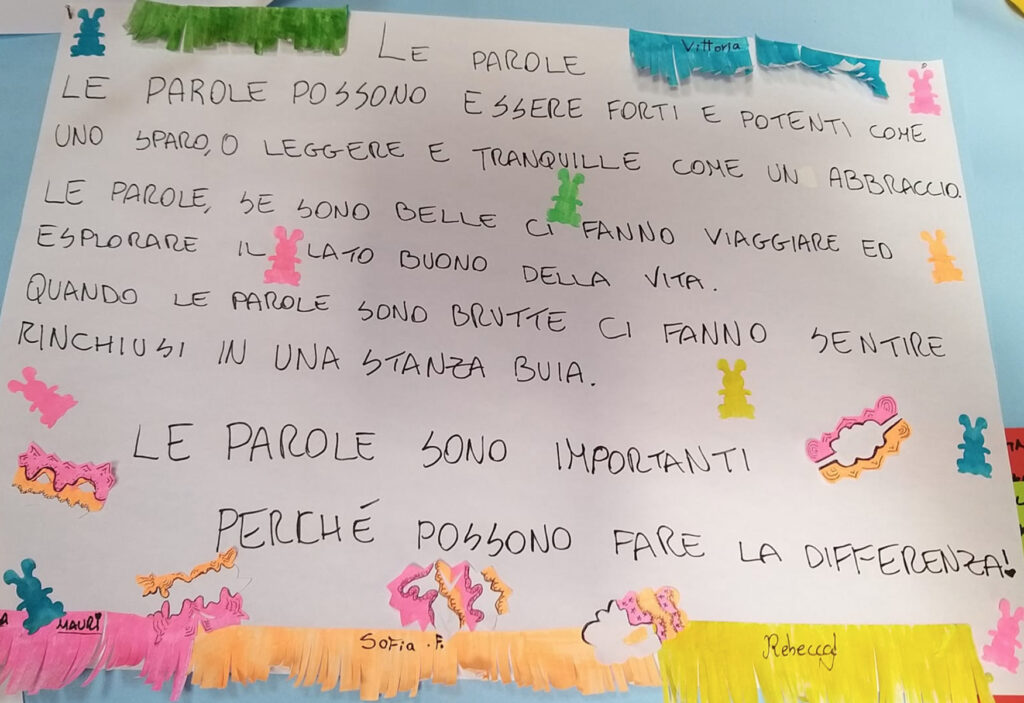 Vittoria
LE PAROLE
LE PAROLE POSSONO ESSERE FORTI E POTENTI COME
UNO SPARO, O LEGGERE E TRANQUILLE COME UN ABBRACCIO.
LE PAROLE, SE SONO BELLE CI FANNO VIAGGIARE ED
ESPLORARE IL LATO BUONO DELLA VITA.
QUANDO LE PAROLE SONO BRUTTE CI FANNO SENTIRE
RINCHIUSI IN UNA STANZA BUIA.
LE PAROLE SONO IMPORTANTI
PERCHÉ POSSONO FARE LA DIFFERENZA!
MAURI
SOFIA . F.
Rebecca